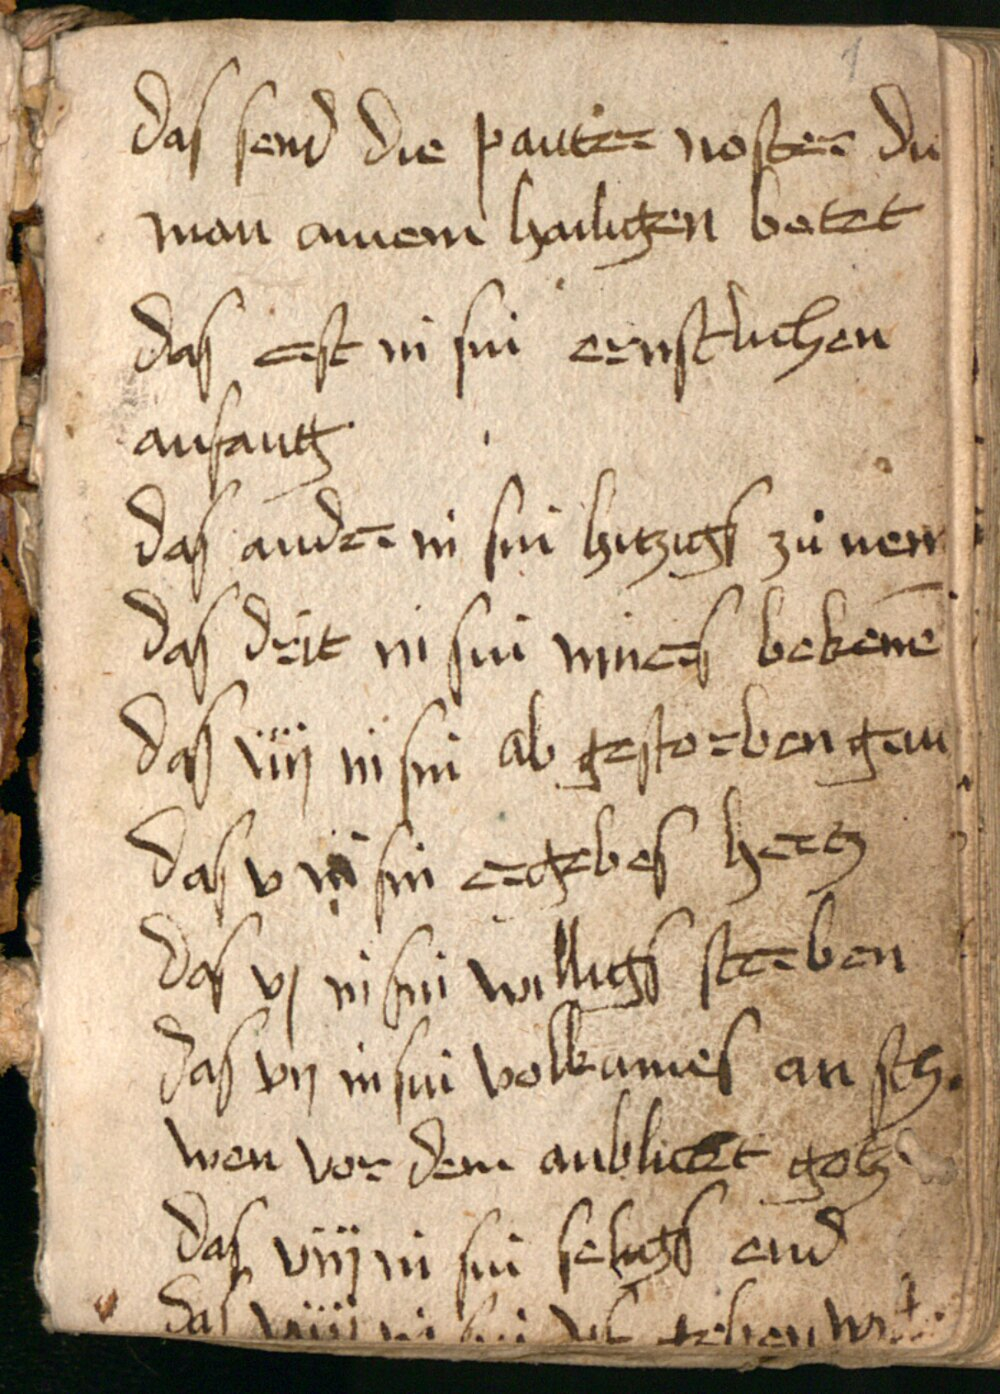 1
das send die pauter noster du
man ainem hailigen betet
das erst in sin ernstlichen
anfang
das ander in sin hitzigs zů nem
das drit in sin miners bekene
das iiij in sin ab gestorben
das v in sin ergebes hertz
das vj in sin willigs sterben
das vij in sin volkumes an sch
wen vor dem anblickt gotz
das viij in sin seligs end
das viiij in sin